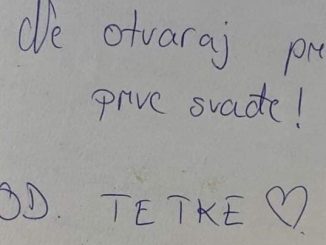 Ne otvaraj pr
prve svađe!
OD. TETKE ♡